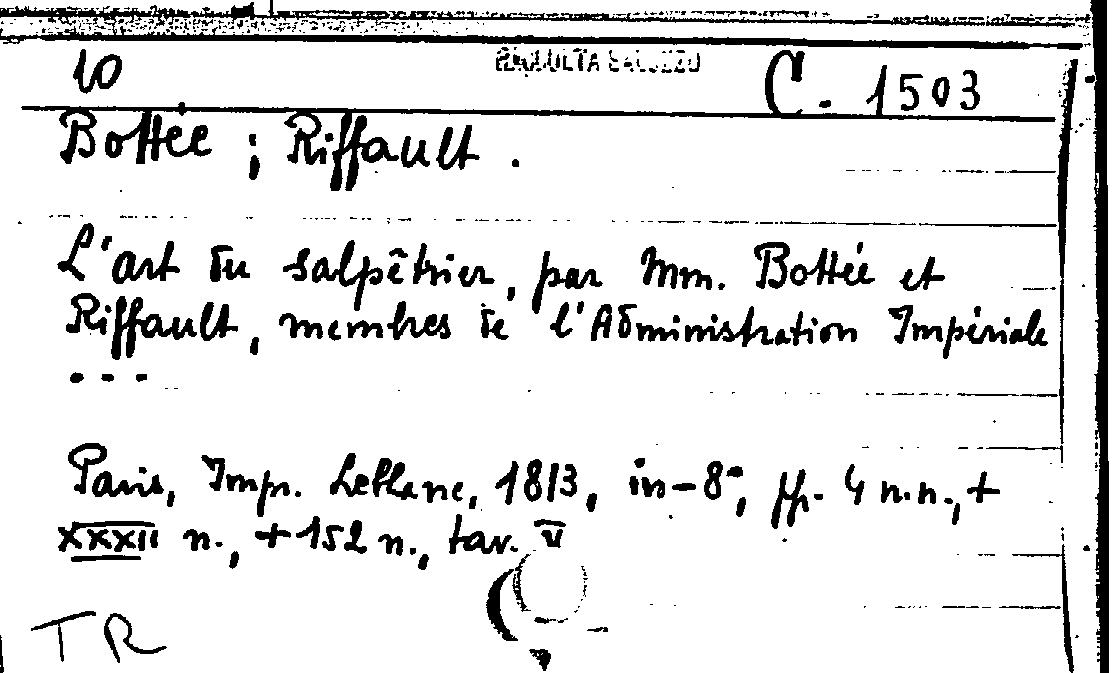 10 RACCOLTA SALUZZO C. 1503
Bottée ; Riffault .
L'art du salpêtrier, par Mm. Bottée et
Riffault, membres de l'Administration Impériale
- - -
Paris, Impr. Leblanc, 1813, in-8°, pp. 4 n.n., +
XXXII n., + 152 n., tav. V
TR